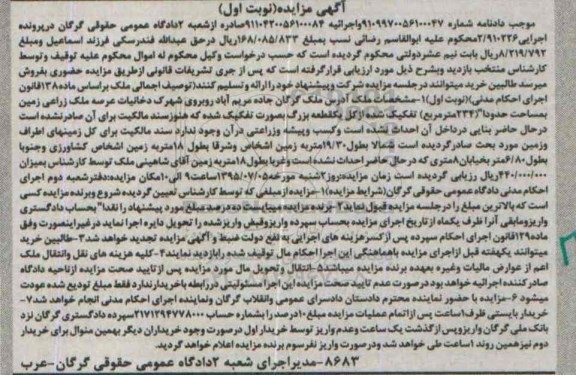 آگهی مزایده(نوبت اول)
موجب دادنامه شماره ۹۱۰۹۹۷۰۰۵۶۱۰۰۰۴۷واجرائیه ۹۱۱۰۴۲۰۰۵۶۱۰۰۰۸۴صادره ازشعبه ۲دادگاه عمومی حقوقی گرگان درپرونده
اجرایی۲/۹۱۰۲۲۶محکوم علیه ابوالقاسم رضائی نسب بمبلغ ۱۶۸/۰۸۵/۸۳۳ریال درحق عبدالله فندرسکی فرزند اسماعیل ومبلغ
۸/۲۱۹/۷۹۲ریال بابت نیم عشردولتی محکوم گردیده است که حسب درخواست وکیل محکوم له اموال محکوم علیه توقیف وتوسط
کارشناس منتخب بازدید وبشرح ذیل مورد ارزیابی قرارگرفته است که پس از جری تشریفات قانونی ازطریق مزایده حضوری بفروش
میرسد طالبین خرید میتوانند درجلسه مزایده شرکت وپیشنهاد خود را ارائه و تسلیم کنند(توصیف اجمالی ملک براساس ماده۱۳۸قانون
اجرای احکام مدنی)(نوبت اول)۱-مشخصات ملک آدرس ملک گرگان جاده مریم آباد روبروی شهرک دخانیات عرصه ملک زراعی زمین
بمساحت حدودا"۲۳۴مترمربع) تفکیک شده ازکل یکقطعه بزرگ بصورت تفکیک شده که هنوزسند مالکیت برای آن صادرنشده است
درحال حاضر بنایی درداخل آن احداث نشده است وکسب وپیشه وزراعتی درآن وجود ندارد سند مالکیت برای کل زمینهای اطراف
وزمین مورد بحث صادرگردیده است شمالا بطول۱۹/۳۰متربه زمین اشخاص وشرقا بطول ۱۸متربه زمین اشخاص کشاورزی وجنوبا
بطول۶/۸۰متر بخیابان۸متری که درحال حاضر احداث نشده است وغربا بطول۱۸متربه زمین آقای شاهینی ملک توسط کارشناس بمیزان
۴۴۰/۰۰۰/۰۰۰ریال رزیابی گردیده است زمان مزایده:روز۲شنبه مورخه۱۳۹۵/۰۷/۰۵ساعت۹ الی۱۰مکان مزایده:دفترشعبه دوم اجرای
احکام مدنی دادگاه عمومی حقوقی گرگان(شرایط مزایده)۱-مزایده ازمبلغی که توسط کارشناس تعیین گردیده شروع وبرنده مزایده کسی
است که بالاترین مبلغ را درجلسه مزایده قبول نماید۲-برنده مزایده میبایست ده درصدمبلغ مورد پیشنهاد را نقدا" بحساب دادگستری
واریزومابقی آنرا ظرف یکماه از تاریخ اجرای مزایده بحساب سپرده واریزوفیض واریزشده را تحویل دایره اجرا نماید درغیراینصورت وفق
ماده۱۲۹قانون اجرای احکام سپرده پس ازکسرهزینه های اجرایی به نفع دولت ضبط و آگهی مزایده تجدید خواهد شد۳-طالبین خرید
میتوانند یکهفته قبل ازاجرای مزایده باهماهنگی این اجرا احکام مال توقیف شده رابازدید نمایند۴-کلیه هزینه های نقل وانتقال ملک
اعم از عوارض مالیات وغیره بعهده برنده مزایده میباشد۵-انتقال وتحویل مال مورد مزایده پس از تایید صحت مزایده ازناحیه دادگاه
صادرکننده اجرائیه خواهد بود درصورت عدم تایید صحت مزایده این اجرا مسئولیتی دررابطه باخریدارندارد فقط مبلغ تودیع شده عودت
میشود ۶-مزایده با حضور نماینده محترم دادستان دادسرای عمومی وانقلاب گرگان ونماینده اجرای احکام مدنی انجام خواهد شد۷-
خریدار بایستی ظرف۱ساعت پس ازاتمام عملیات مزایده مبلغ۱۰درصد را بشماره حساب ۲۱۷۱۲۹۴۷۷۸۰۰۰سپرده دادگستری گرگان نزد
بانک ملی گرگان واریزوپس ازگذشت یک ساعت وعدم واریز توسط خریدار اول درصورت وجود خریداران دیگر بهمین منوال برای خریدار
دوم نیزهمین روند ۱ساعت طی خواهد شد ودرصورت واریز نفرسوم برنده مزایده اعلام خواهد گردید.
۸۶۸۳-مدیراجرای شعبه ۲دادگاه عمومی حقوقی گرگان-عرب